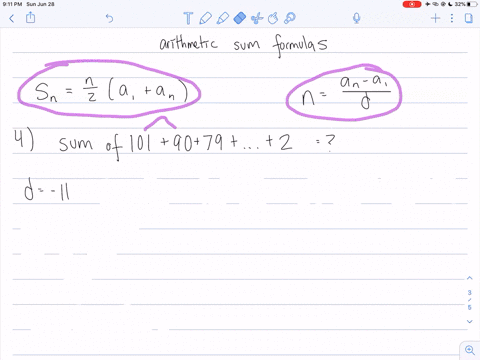 9:11 PM Sun Jun 28
32%
arithmetic sum formulas
Sₙ = n/2 (a₁ + aₙ)
n = aₙ - a₁ / d
4) sum of 101 + 90 + 79 + ... + 2 = ?
d = -11
3
/
5